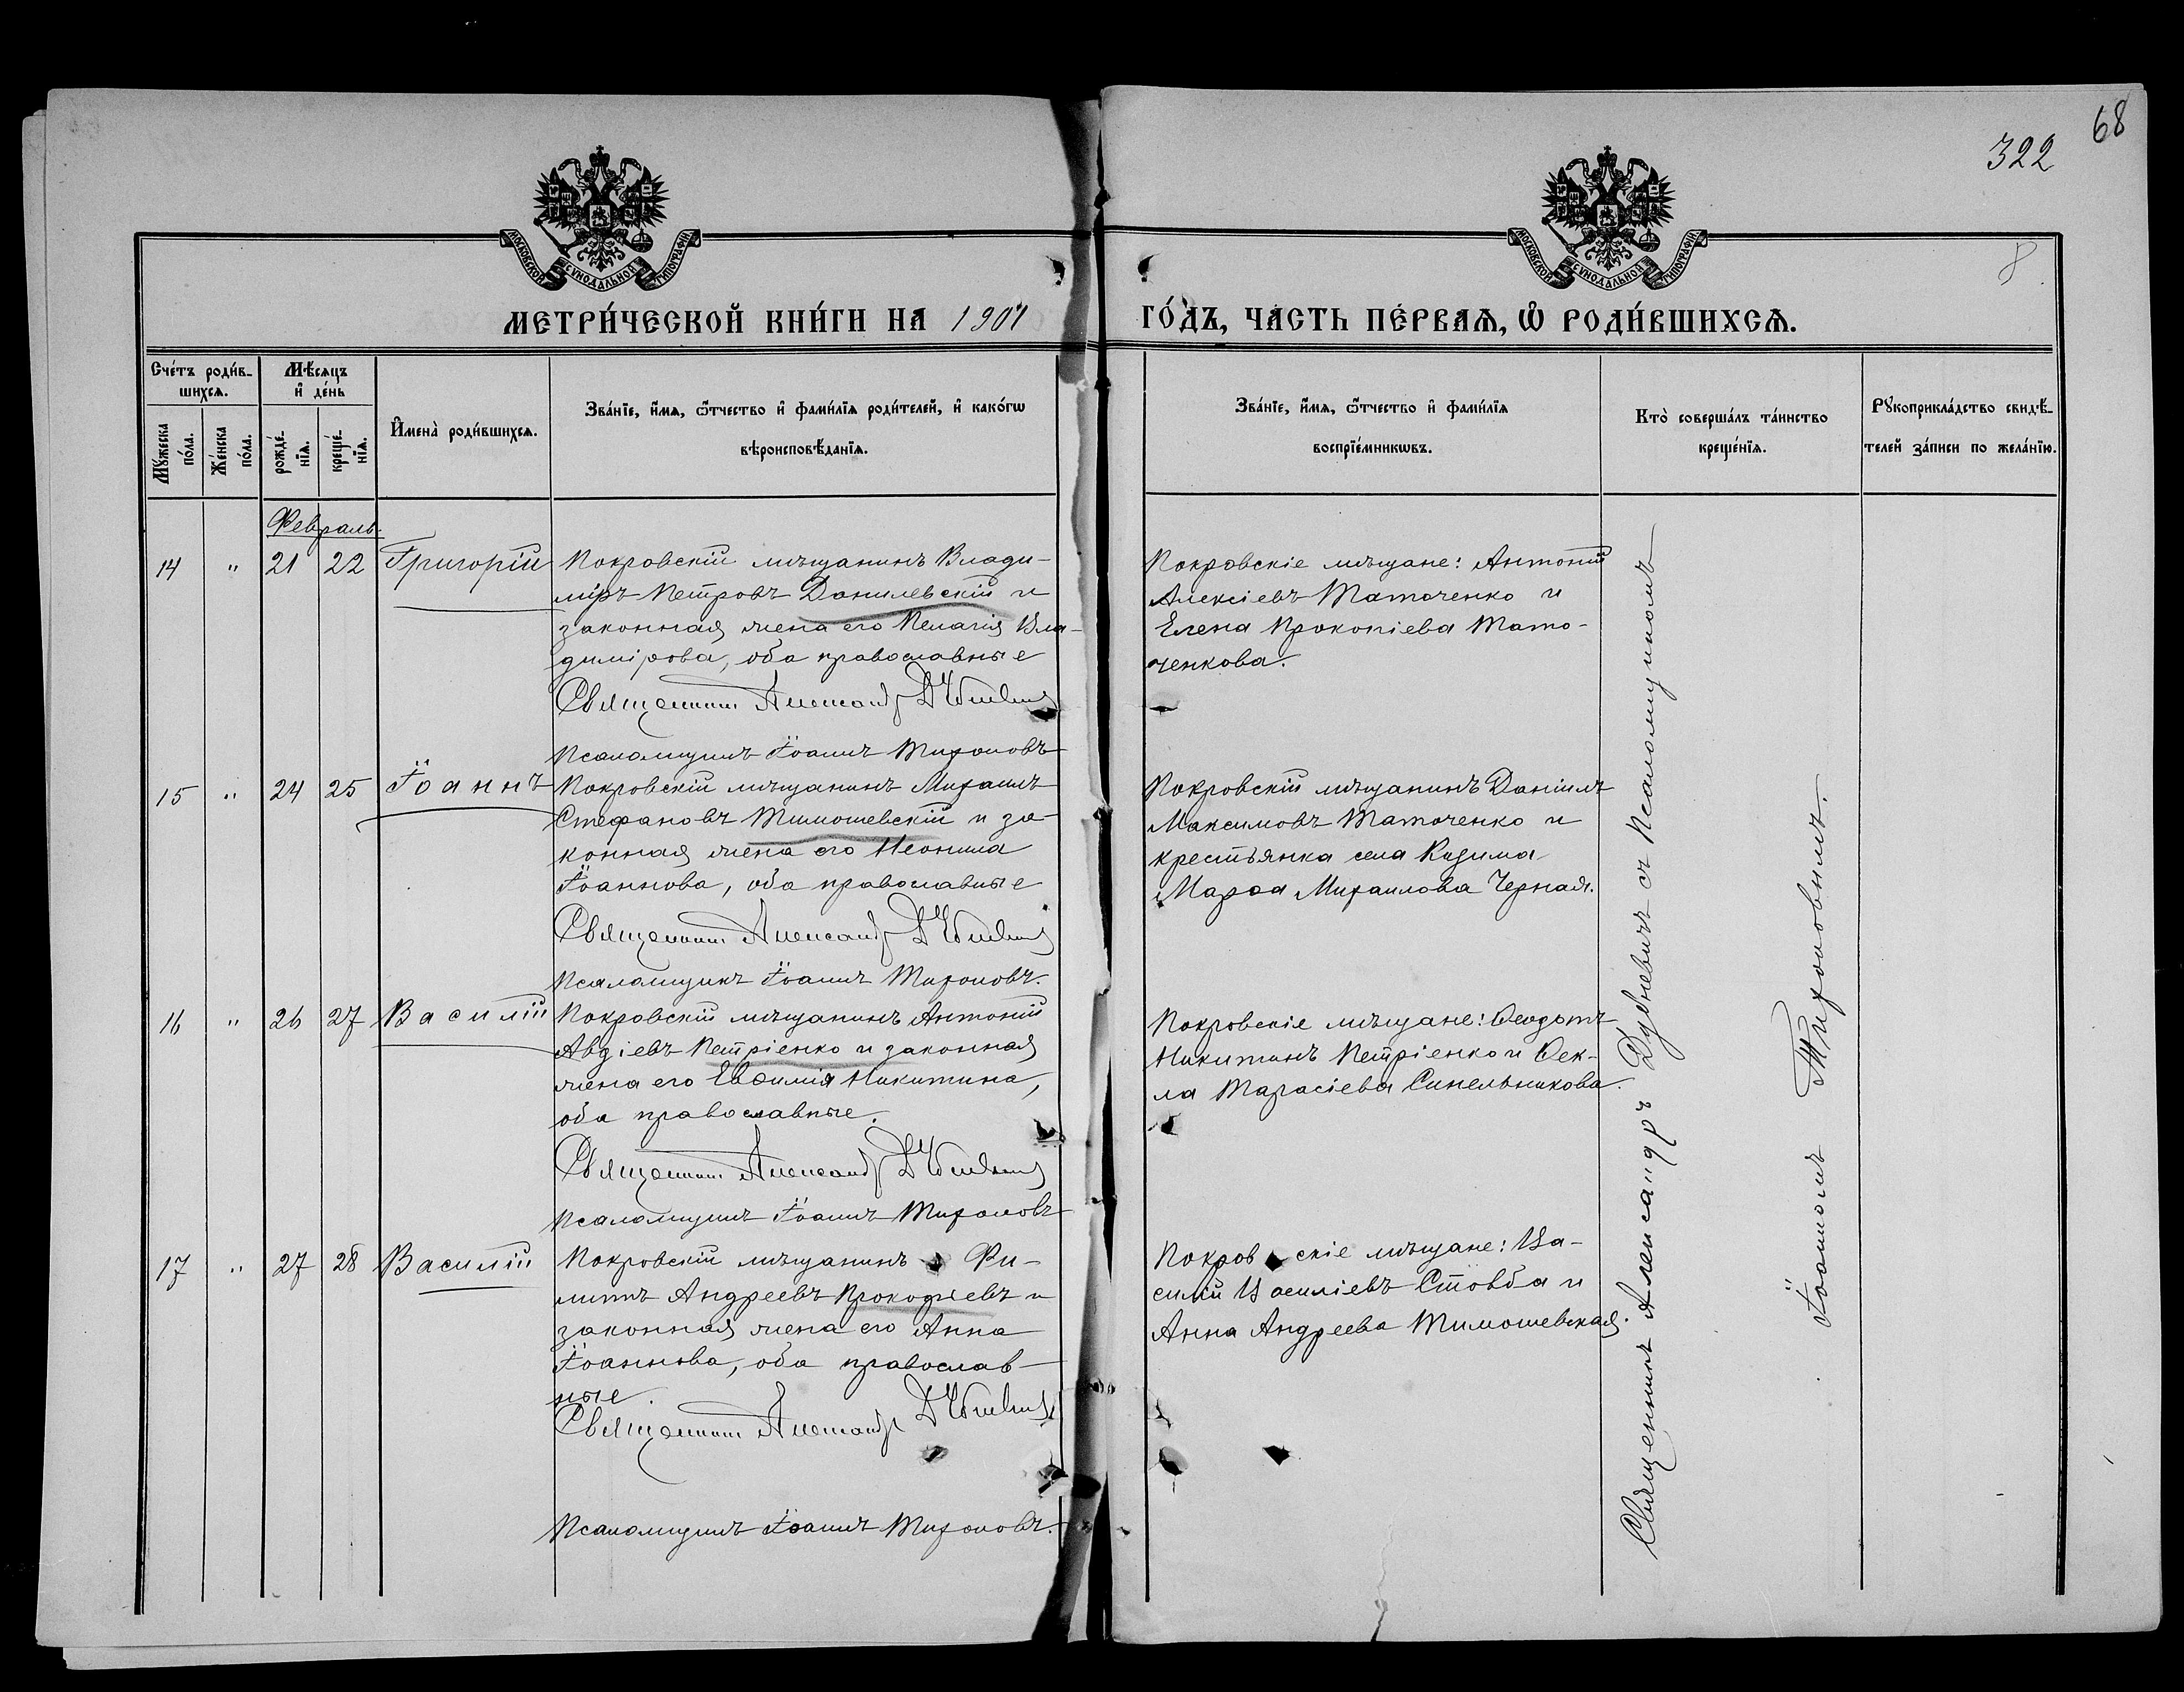 68
322
8
МОСКОВСКОЙ СѴНОДАЛЬНОЙ ТИПОГРАФІИ
МОСКОВСКОЙ СѴНОДАЛЬНОЙ ТИПОГРАФІИ
МЕТРИ́ЧЕСКОЙ КНИ́ГИ НА 1901 ГО́ДЪ, ЧА́СТЬ ПЕ́РВАѦ, Ѡ҆ РОДИ́ВШИХСѦ.
Сче́тъ роди́в-
шихсѧ.
Мꙋ́жеска по́ла.
Же́нска по́ла.
Мѣ́сѧцъ
и҆ де́нь
рожде́-
нїѧ.
креще́-
нїѧ.
И҆мена̀ роди́вшихсѧ.
Зва́нїе, и҆́мѧ, ѻ҆́тчество и҆ фами́лїѧ роди́телей, и҆ како́гѡ
вѣроисповѣ́данїѧ.
Зва́нїе, и҆́мѧ, ѻ҆́тчество и҆ фами́лїѧ
воспрїе́мникѡвъ.
Кто̀ соверша́лъ та́инство
креще́нїѧ.
Рꙋкоприкла́дство свидѣ́-
телей за́писи по жела́нїю.
Февраль
14 " 21 22 Григорій
Покровскій мѣщанинъ Влади-
міръ Петровъ Данилевскій и
законная жена его Пелагія Вла-
димірова, оба православные
Священник Александр Дубневич
Псаломщикъ Іоаннъ Тихоновъ
Покровскіе мѣщане: Антоній
Алексіевъ Таточенко и
Елена Прокопіева Тато-
ченкова.
15 " 24 25 Іоаннъ
Покровскій мѣщанинъ Михаилъ
Стефановъ Тимошевскій и за-
конная жена его Неонила
Іоаннова, оба православные
Священник Александр Дубневич
Псаломщикъ Іоаннъ Тихоновъ.
Покровскій мѣщанинъ Даніилъ
Максимовъ Таточенко и
крестьянка села
Марѳа Михаилова Черная.
16 " 26 27 Василій
Покровскій мѣщанинъ Антоній
Авдіевъ Петріенко и законная
жена его Евѳимія Никитина,
оба православные.
Священник Александр Дубневич
Псаломщикъ Іоаннъ Тихоновъ
Покровскіе мѣщане: Ѳеодотъ
Никитинъ Петріенко и Ѳек-
ла Тарасіева Синельникова.
17 " 27 28 Василій
Покровскій мѣщанинъ Фи-
липпъ Андреевъ Прокофіевъ и
законная жена его Анна
Іоаннова, оба православ-
ные.
Священник Александр Дубневич
Псаломщикъ Іоаннъ Тихоновъ.
Покровскіе мѣщане: Ва-
силій Василіевъ Стовба и
Анна Андреева Тимошевская.
Священникъ Александръ Дубневичъ съ Псаломщикомъ
Іоанномъ Тихоновымъ.